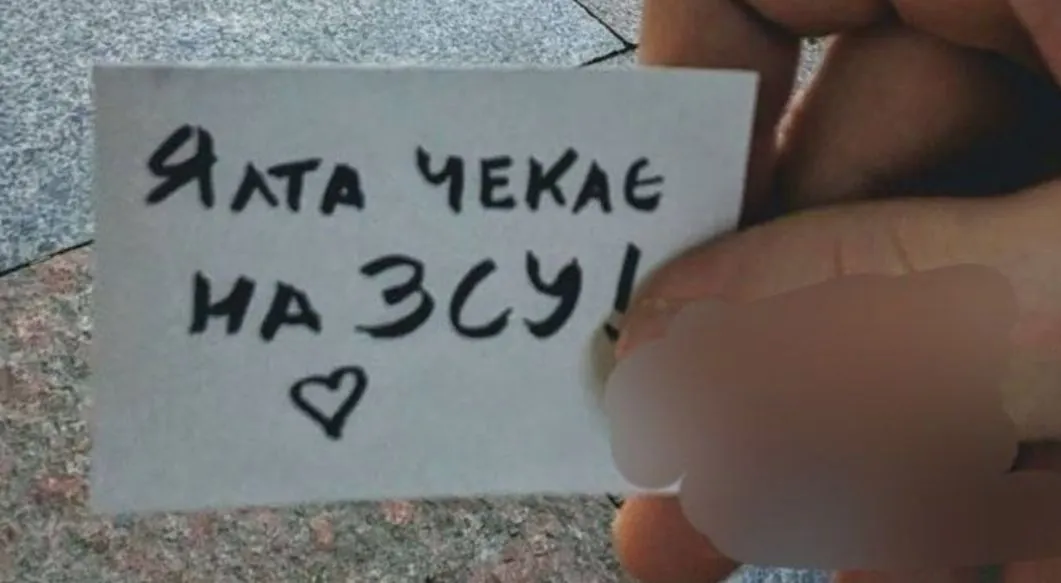 Ялта чекає
на ЗСУ!